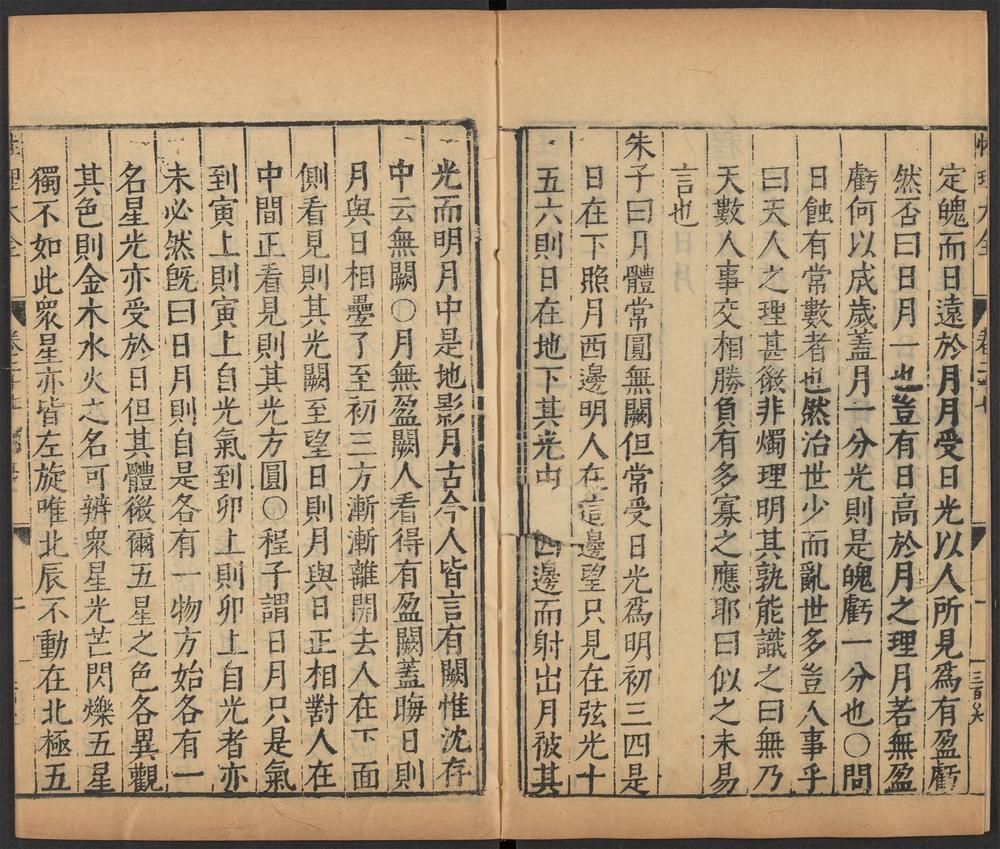 定魄而日遠於月月受日光以人所見爲有盈虧
然否曰日月一也豈有日高於月之理月若無盈
虧何以成歲蓋月一分光則是魄虧一分也○問
日蝕有常數者也然治世少而亂世多豈人事乎
曰天人之理甚微非燭理明其孰能識之曰無乃
天數人事交相勝負有多寡之應耶曰似之未易
言也
朱子曰月體常圓無闕但常受日光爲明初三四是
日在下照月西邊明人在這邊望只見在弦光十
五六則日在地下其光由四邊而射出月被其
光而明月中是地影月古今人皆言有闕惟沈存
中云無闕○月無盈闕人看得有盈闕蓋晦日則
月與日相疊了至初三方漸漸離開去人在下面
側看見則其光闕至望日則月與日正相對人在
中間正看見則其光方圓○程子謂日月只是氣
到寅上則寅上自光氣到卯上則卯上自光者亦
未必然旣曰日月則自是各有一物方始各有一
名星光亦受於日但其體微爾五星之色各異觀
其色則金木水火之名可辨衆星光芒閃爍五星
獨不如此衆星亦皆左旋唯北辰不動在北極五
性理大全